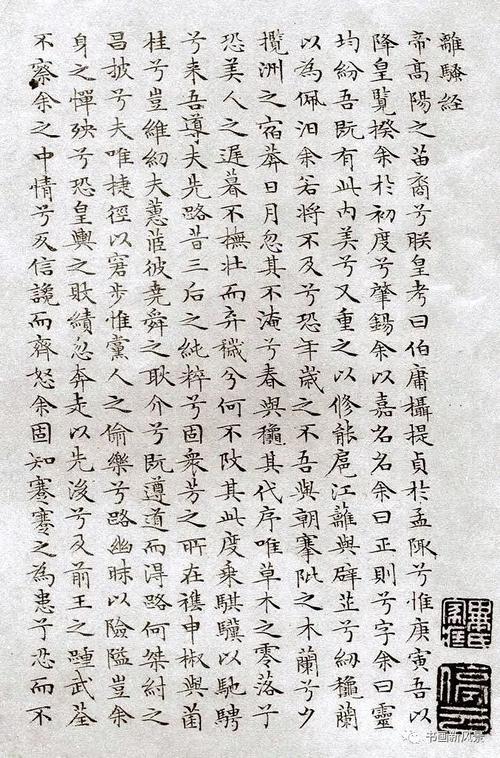 離騷經
帝高陽之苗裔兮朕皇考曰伯庸攝提貞於孟陬兮惟庚寅吾以
降皇覽揆余於初度兮肇錫余以嘉名名余曰正則兮字余曰靈
均紛吾既有此内美兮又重之以修能扈江離與辟芷兮紉穐蘭
以為佩汨余若將不及兮恐年歲之不吾與朝搴阰之木蘭兮夕
攬洲之宿莽日月忽其不淹兮春與穐其代序唯草木之零落兮
恐美人之遲暮不撫壯而弃穢兮何不改其此度乘騏驥以馳騁
兮来吾導夫先路昔三后之純粹兮固衆芳之所在襍申椒與菌
桂兮豈維紉夫蕙茝彼堯舜之耿介兮既遵道而得路何桀紂之
昌披兮夫唯捷徑以窘步惟黨人之偷樂兮路幽昧以險隘豈余
身之憚殃兮恐皇輿之敗績忽奔走以先後兮及前王之踵武荃
不察余之中情兮反信讒而齊怒余固知謇謇之為患兮忍而不
停雲
书画新风景